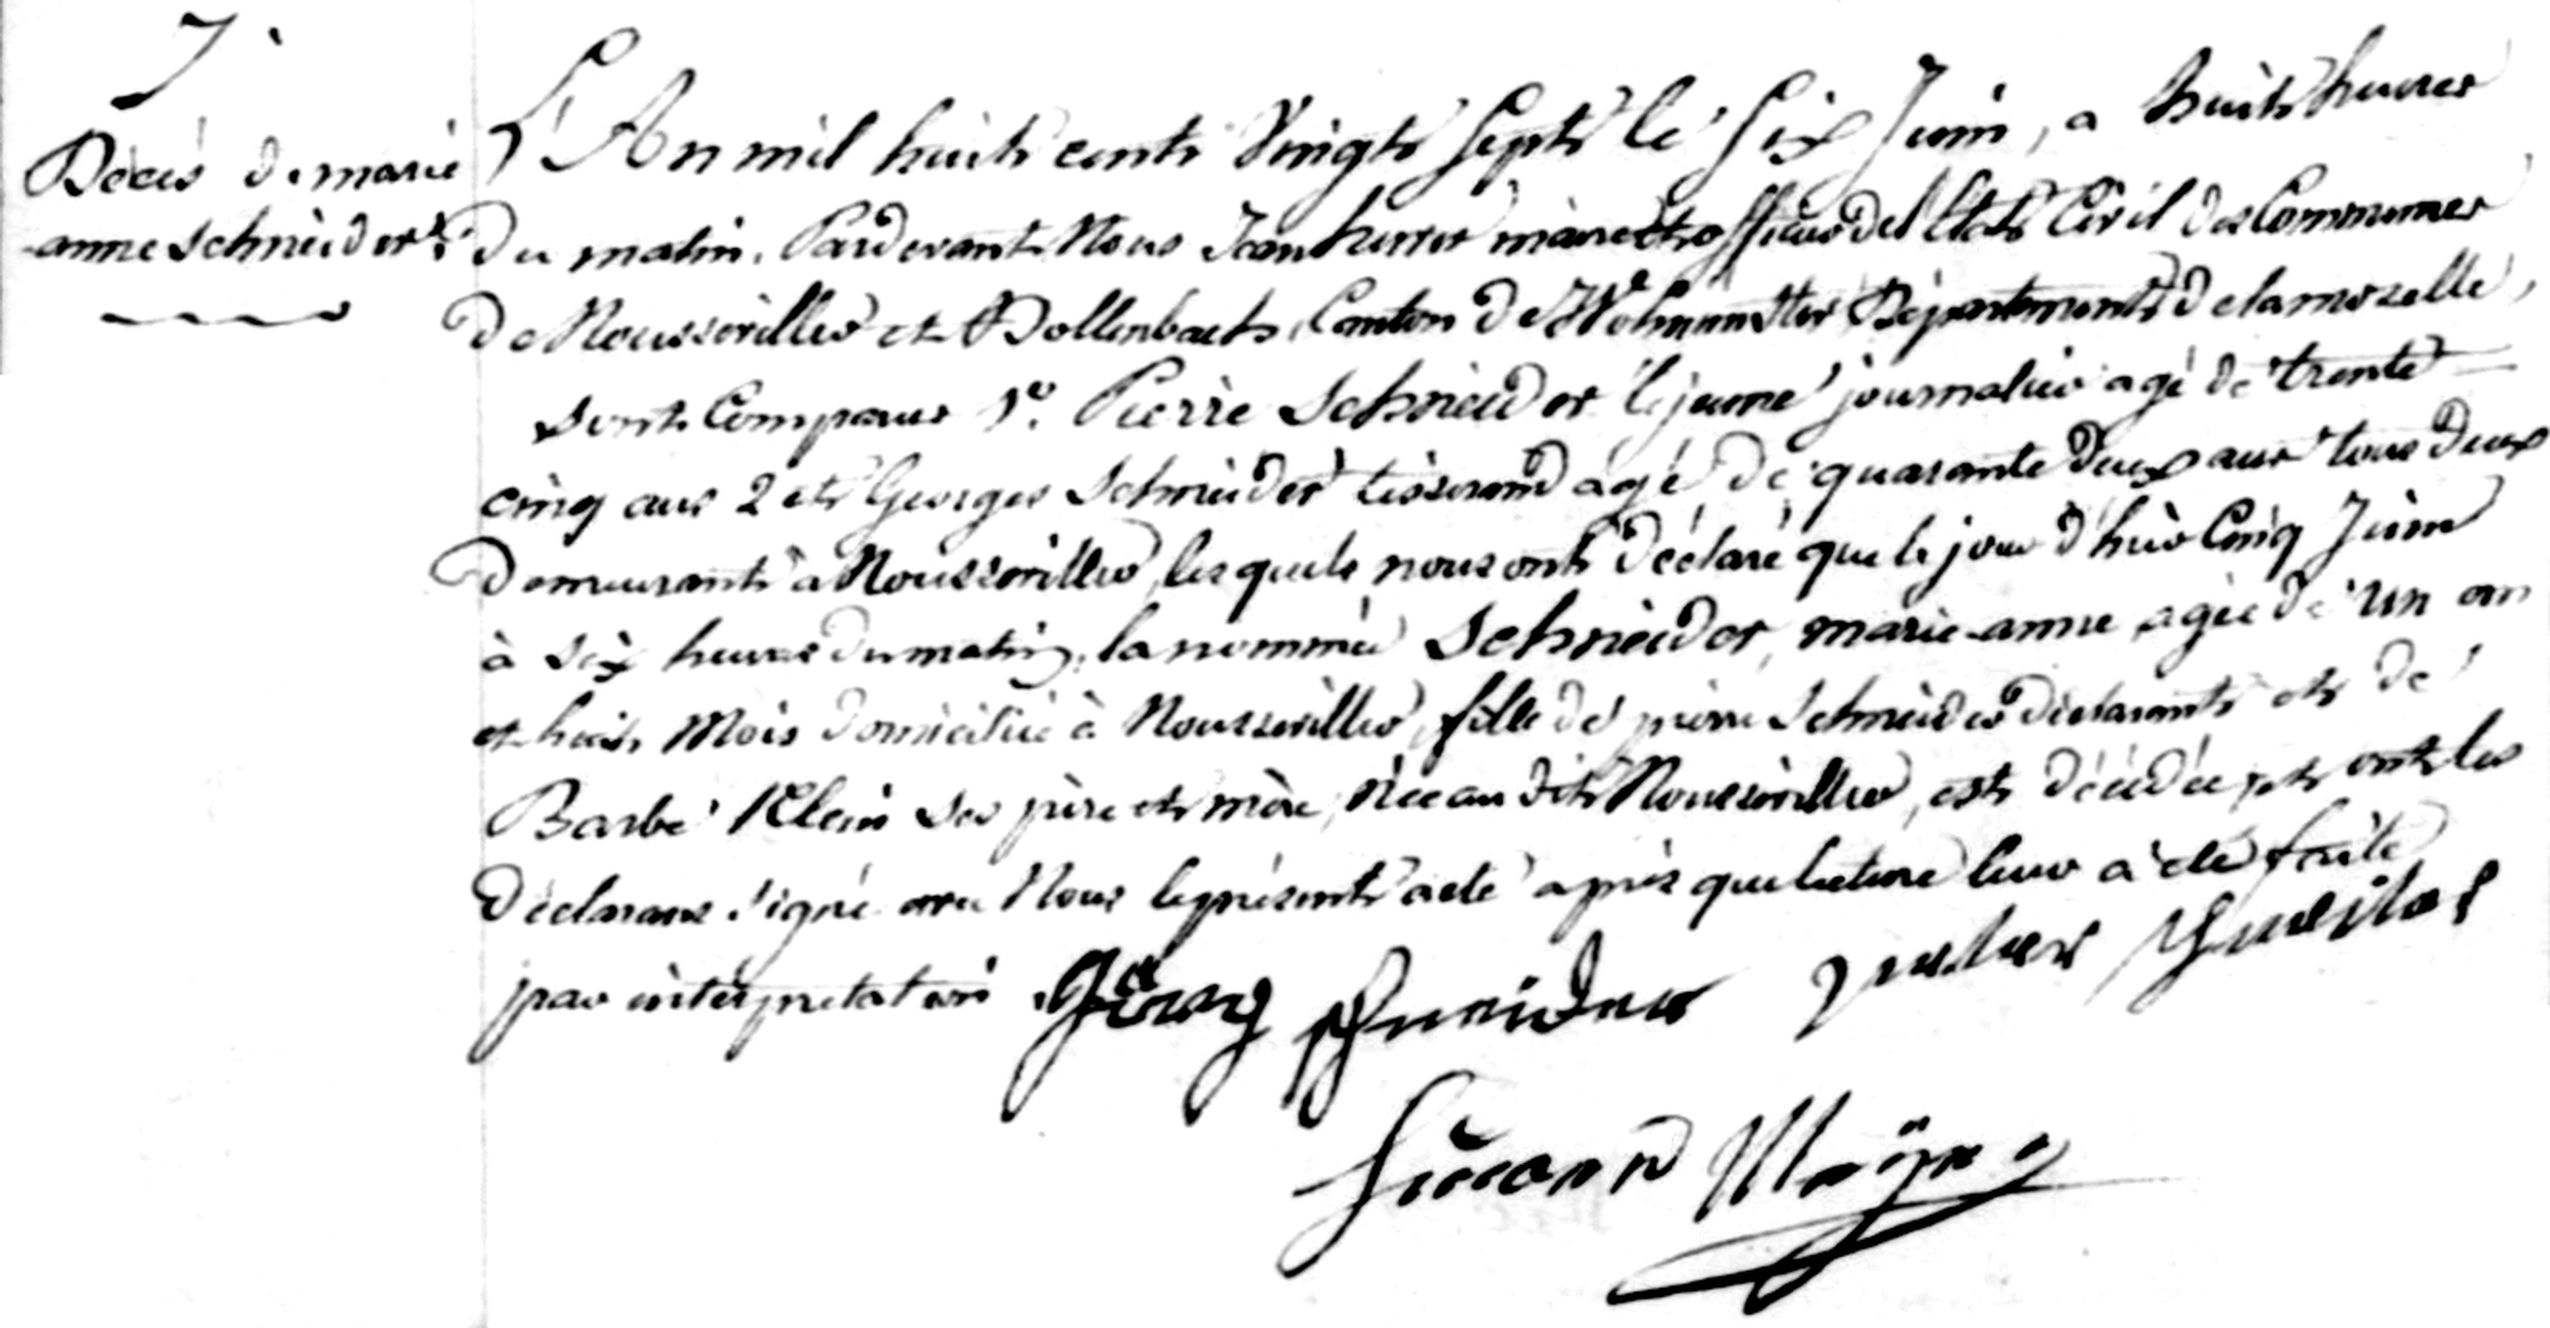 7
Décès de marie
anne Schneider
L'An mil huit cent Vingt Sept le Six Juin, a huit heures
Du matin. Pardevant Nous Jean hurrer maire et officier del'Etat Civil des Communes
De Nousseviller et Dollenbach, Canton De Wolmunster Département de lamozelle,
Sont Comparus 1º. Pierre Schneider le jeune journalier agé de trente
cinq ans 2 et Georges Schneider tisserand agé de quarante deux ans tous deux
Demeurant à Nousseviller, les quels nous ont déclaré que le jour d'hier Cinq Juin
à Six heures du matin, la nommée Schneider, marie-anne, agée de un an
et huit Mois domiciliée à Nousseviller, fille de pierre Schneider déclarant et de
Barbe Klein ses père et mère, Née au dit Nousseviller, est décédée, et ont les
déclarans signé avec Nous le présent acte après que lecture leur à été faite
par interpretation. Görg Schneider